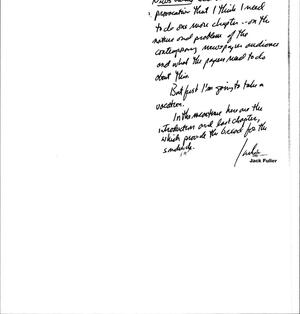 provocation that I think I need
to do one more chapter -- on the
nature and problem of the
contemporary newspaper audience
and what the papers need to do
about this.
But first I'm going to take a
vacation.
In the meantime here are the
introduction and first chapter,
which provide the bread for the
sandwich.
Jack
Jack Fuller